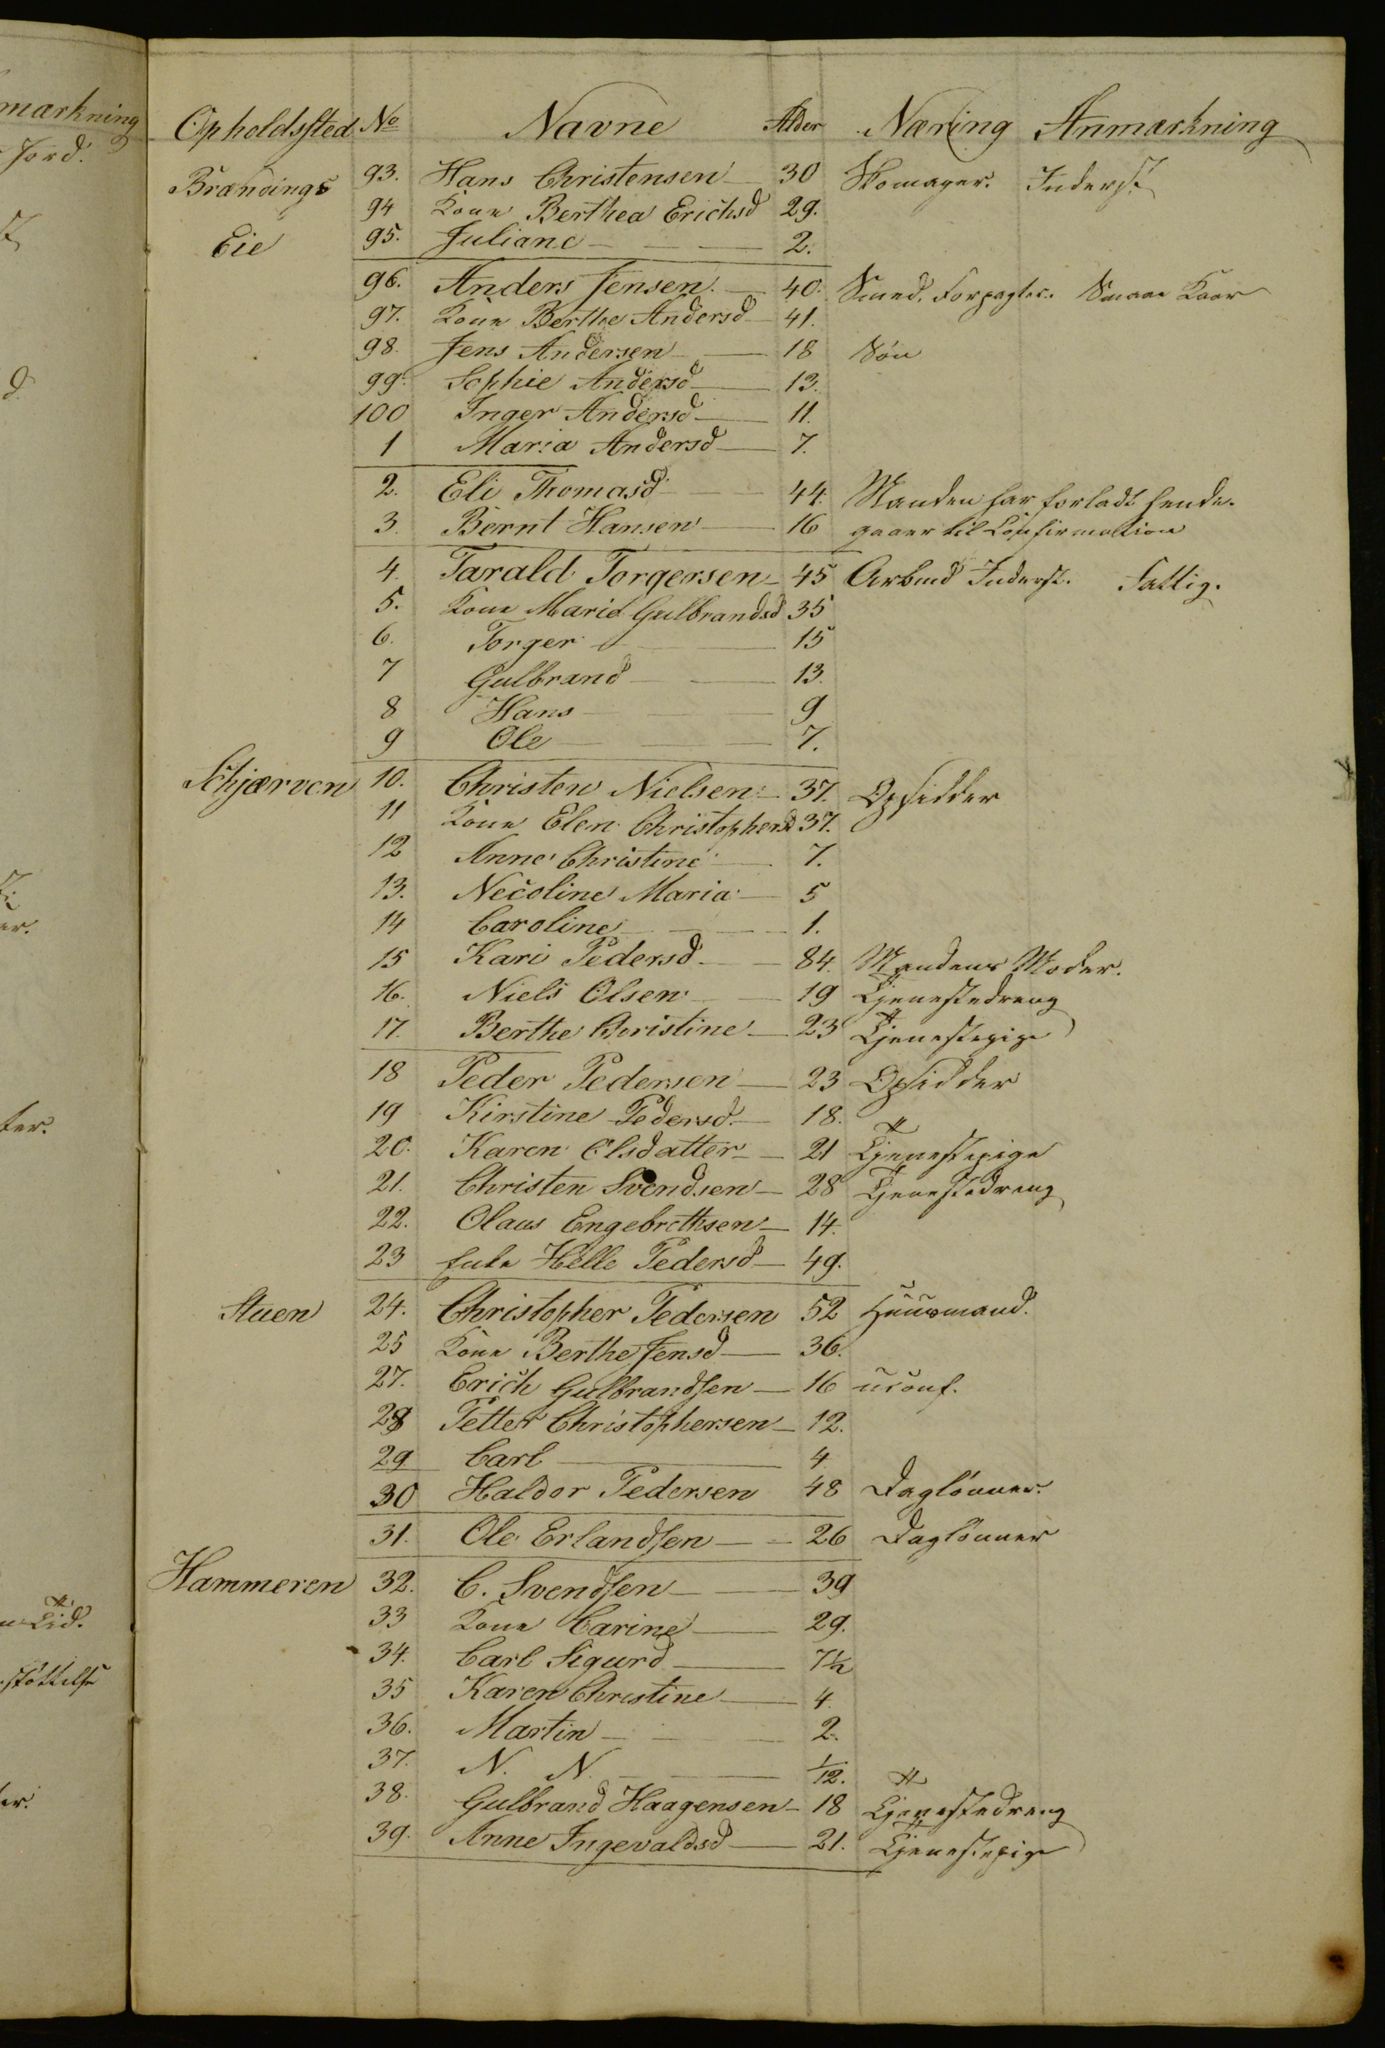 Opholdssted No Navne Alder Næring Anmærkning
Brændings 93. Hans Christensen 30 Skomager. Inderst
94 Kone Berthea Erichsd 29.
Eie 95. Juliane 2.
96. Anders Jensen 40. Smed, Forpagter. Smaae Kaar
97. Kone Berthe Andersd 41.
98. Jens Andersen 18 Søn
99. Sophie Andersd 13.
100 Inger Andersd 11.
1 Maria Andersd 7.
2. Eli Thomasd 44. Manden har forladt hende.
3. Bernt Hansen 16 gaaer til Confirmation
4. Tarald Torgersen 45 Arbmd Inderst. Fattig.
5. Kone Marie Gulbrandsd 35
6. Torger 15
7 Gulbrand 13.
8 Hans 9
9 Ole 7.
Schjærven 10. Christen Nielsen 37. Opsidder
11 Kone Elen Christophersd 37.
12 Anne Christine 7.
13. Necoline Maria 5
14 Caroline 1.
15 Kari Pedersd 84. Mandens Moder.
16. Niels Olsen 19 Tjenestedreng
17. Berthe Christine 23 Tjenestepige
18 Peder Pedersen 23 Opsidder
19 Kirstine Pedersd. 18.
20. Karen Olsdatter 21 Tjenestepige
21. Christen Svendsen 28 Tjenestedreng
22. Olaus Engebrethsen 14.
23 Enke Helle Pedersd 49.
Stuen 24. Christopher Pedersen 52 Huusmand.
25 Kone Berthe Jensd 36.
27. Erich Gulbrandsen 16 uconf.
28 Petter Christophersen 12.
29 Carl 4
30 Haldor Pedersen 48 Daglønner.
31. Ole Erlandsen 26 Daglønner
Hammeren 32. C. Svendsen 39
33 Kone Carine 29.
34. Carl Sigurd 7½
35 Karen Christine 4.
36. Martin 2.
37. N. N. 1/12.
38. Gulbrand Haagensen 18 Tjenestedreng
39. Anne Ingevaldsd 21. Tjenestepige